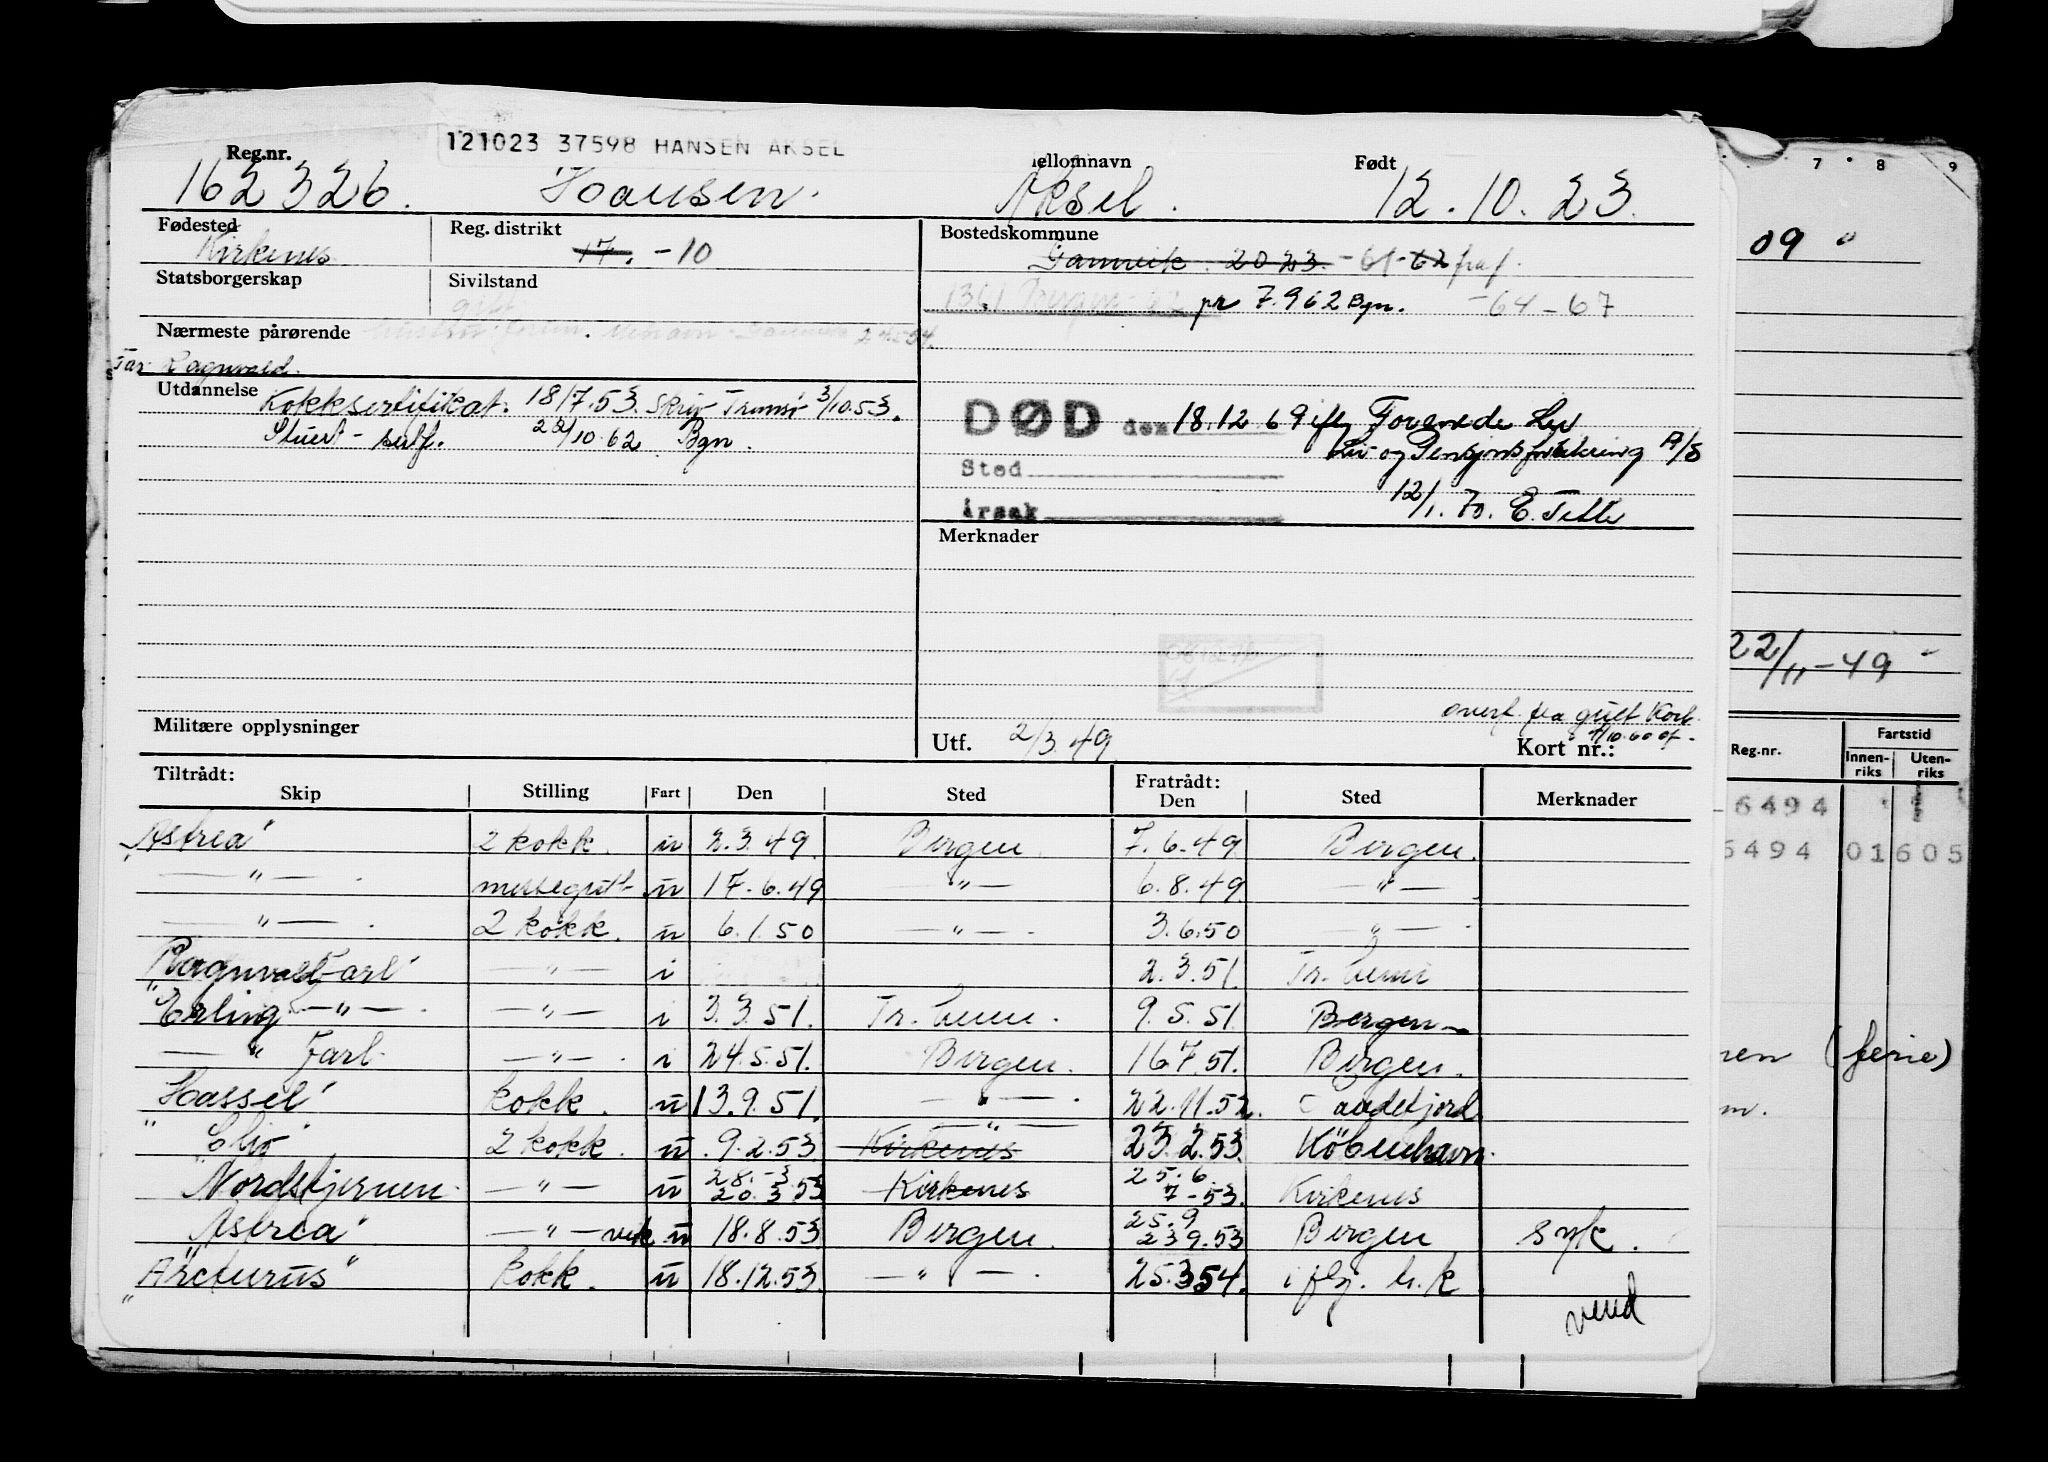 121023 37598 HANSEN AKSEL
Reg.nr. ellomnavn Født
162326. Hansen. Aksel. 12.10.23.
Fødested Reg. distrikt Bostedskommune
Kirkenes 17. -10 Gamvik. 2023. -61-62 fraf.
Statsborgerskap Sivilstand
gift 1301 Bergen 62 pr 7.962 Bgn. -64-67
Nærmeste pårørende
Far Ragnvald.
Utdannelse Kokksertifikat. 18/7.53. Skrip Tromsø 3/10.53.
Stuert-sertf. 22/10.62 Bgn.
DØD den 18.12 69 iflg Forenede Liv
Liv- og Pensjonsforsikring A/S
Sted
12/1.70. E. Tette
årsak
Merknader
overf. fra gult kort.
1/10.60 of-
Militære opplysninger Utf. 2/3.49 Kort nr.:
Tiltrådt: Fratrådt:
Skip Stilling Fart Den Sted Den Sted Merknader
"Astrea" 2 kokk. u 2.3.49. Bergen. 7.6.49. Bergen.
—"—. messegutt u 17.6.49 —"— 6.8.49 —"—
—"—. 2 kokk. u 6.1.50 —"—. 3.6.50 —"—.
"Ragnvald Jarl" —"— i 2.3.51. Tr.heim
"Erling —"—. —"— i 3.3.51. Tr.heim. 9.5.51. Bergen
—" Jarl. —"—. i 24.5.51. Bergen. 16.7.51. Bergen.
"Hassel" kokk. u 13.9.51. —"—. 22.11.52. Sandefjord
"Clio" 2 kokk. u 9.2.53. —"— Kirkenes 23.2.53. København.
"Nordstjernen. —"— u 28.-3. 20.3.53 Kirkenes 25.6. 7-53. Kirkenes
"Astrea" —"— vik u 18.8.53 Bergen. 25.9 23 9.53 Bergen syk.
"Arcturus" kokk. u 18.12.53. —"—. 25.3.54. iflg. h.k
vend
7 8 9
09 "
22/11-49 -
Reg.nr. Fartstid
Innen-riks Uten-riks
6494
6494 01605
(ferie)